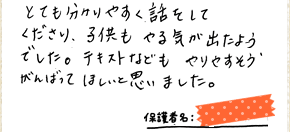 とても分かりやすく話をして
くださり、子供も やる気が出たよう
でした。テキストなども やりやすそう
がんばって ほしいと思いました。
保護者名: